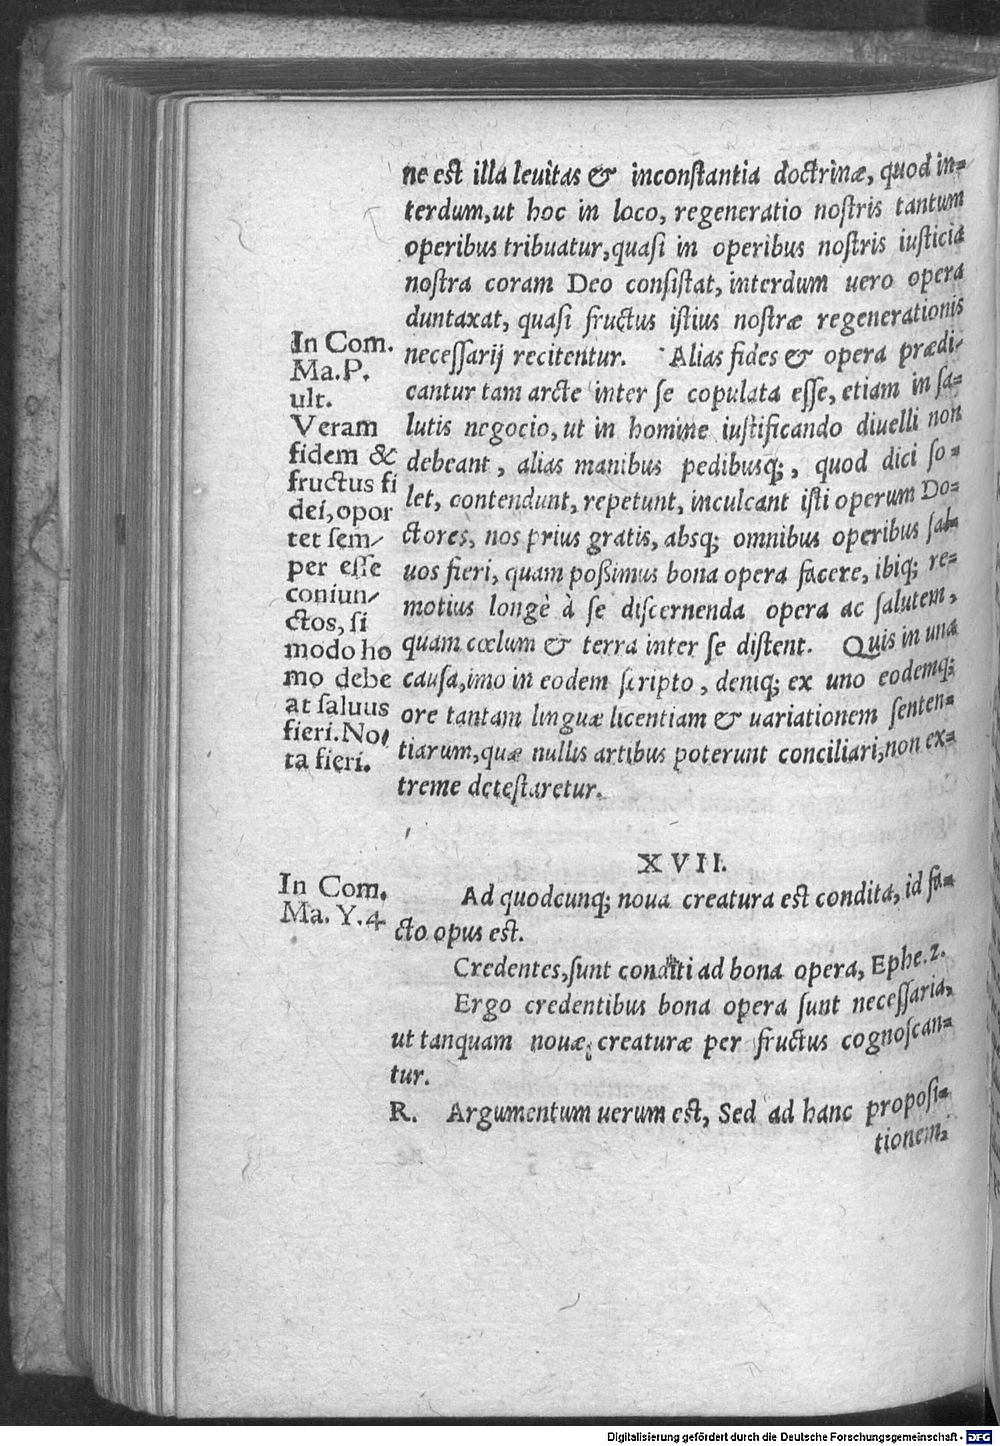 ne est illa leuitas & inconstantia doctrinæ, quod in=
terdum, ut hoc in loco, regeneratio nostris tantum
operibus tribuatur, quasi in operibus nostris iusticia
nostra coram Deo consistat, interdum uero opera
duntaxat, quasi fructus istius nostræ regenerationis
necessarij recitentur. Alias fides & opera prædi-
cantur tam arcte inter se copulata esse, etiam in sa=
lutis negocio, ut in homine iustificando diuelli non
debeant, alias manibus pedibusq;, quod dici so=
let, contendunt, repetunt, inculcant isti operum Do=
ctores, nos prius gratis, absq; omnibus operibus sal=
uos fieri, quam poßimus bona opera facere, ibiq; re=
motius longè à se discernenda opera ac salutem,
quam cœlum & terra inter se distent. Quis in una
causa, imo in eodem scripto, deniq; ex uno eodemq;
ore tantam linguæ licentiam & uariationem senten=
tiarum, quæ nullis artibus poterunt conciliari, non ex=
treme detestaretur.
In Com.
Ma. P.
ult.
Veram
fidem &
fructus fi
dei, opor
tet sem-
per esse
coniun-
ctos, si
modo ho
mo debe
at saluus
fieri. No,
ta fieri.
XVII.
In Com.
Ma. Y. 4
Ad quodcunq; noua creatura est condita, id fa=
cto opus est.
Credentes, sunt conditi ad bona opera, Ephe. 2.
Ergo credentibus bona opera sunt necessaria,
ut tanquam nouæ creaturæ per fructus cognoscan=
tur.
R. Argumentum uerum est, Sed ad hanc proposi=
tionem,
Digitalisierung gefördert durch die Deutsche Forschungsgemeinschaft - DFG